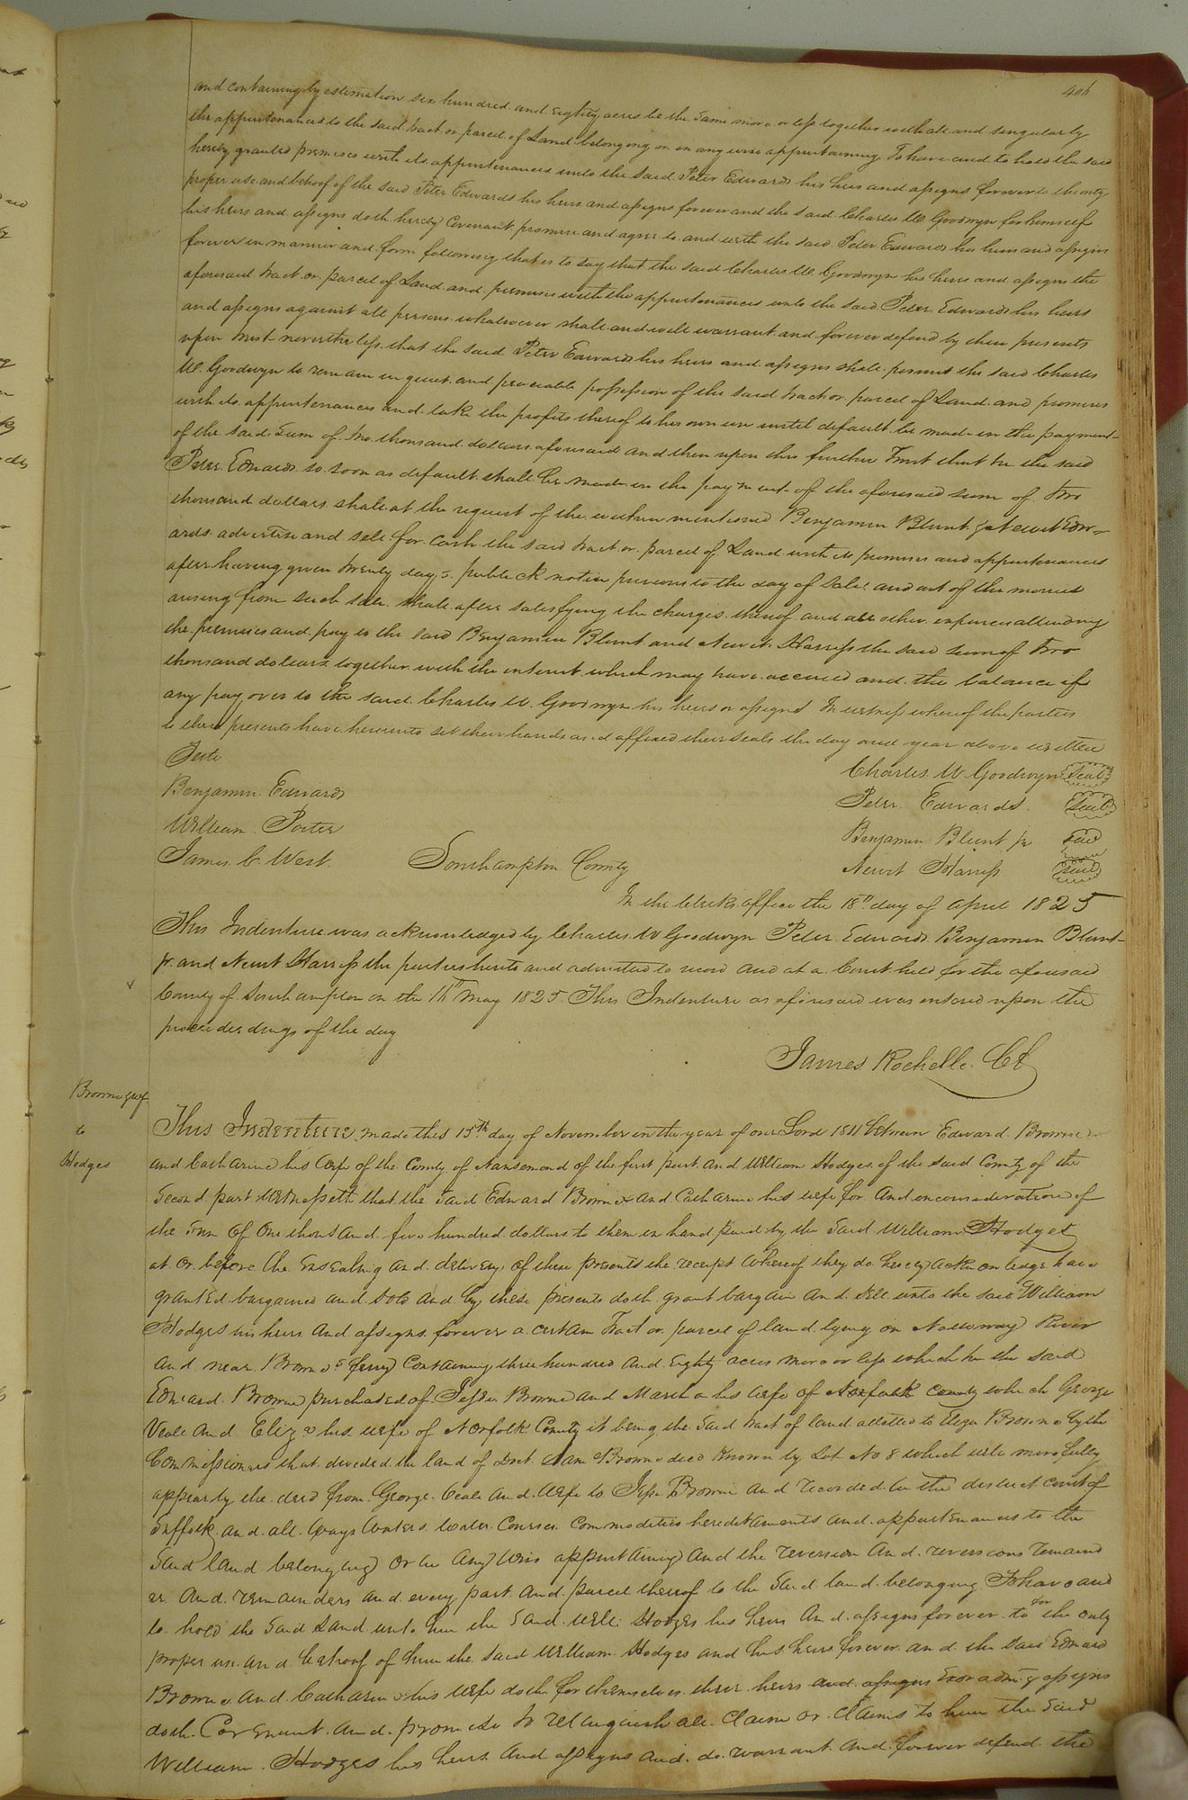 406
and containing by estimation six hundred and eighty acres be the same more or less together with all and singular by
the appurtenances to the said tract or parcel of Land belonging or in any wise appertaining To have and to hold the said
hereby granted premises with its appurtenances unto the said Peter Edwards his heirs and assigns forever to the only
proper use and behoof of the said Peter Edwards his heirs and assigns forever and the said Charles W Goodwyn for himself
his heirs and assigns doth hereby Covenant promise and agree to and with the said Peter Edwards his heirs and assigns
forever in manner and form following that is to say that the said Charles W Goodwyn his heirs and assigns the
aforesaid tract or parcel of Land and premises with the appurtenances unto the said Peter Edwards his heirs
and assigns against all persons whatsoever shall and will warrant and forever defend by these presents
upon trust nevertheless that the said Peter Edwards his heirs and assigns shall permit the said Charles
W. Goodwyn to remain in quiet and peaceable possession of the said tract or parcel of Land and premises
with its appurtenances and take the profits thereof to his own use until default be made in the payment
of the said Sum of two thousand dollars aforesaid and then upon this further Trust that he the said
Peter Edwards so soon as default shall be made in the payment of the aforesaid sum of two
thousand dollars shall at the request of the within mentioned Benjamin Blunt
ards advertise and sell for cash the said tract or parcel of Land with its premises and appurtenances
after having given twenty days publick notice previous to the day of Sale and out of the monies
arising from such sale shall after satisfying the charges thereof and all other expences attending
the premises and pay to the said Benjamin Blunt and Newit Harriss the said sum of two
thousand dollars together with the interest which may have accrued and the balance if
any pay over to the said Charles W. Goodwyn his heirs or assigns In witness whereof the parties
to these presents have hereunto set their hands and affixed their seals the day and year above written
Teste
Charles W Goodwyn Seal
Benjamin Edwards
Peter Edwards Seal
William Porter
Benjamin Blunt jr Seal
James C. West
Southampton County
Newit Harriss Seal
In the Clerks office the 18th day of April 1825
This Indenture was acknowledged by Charles W Goodwyn Peter Edwards Benjamin Blunt
jr and Newit Harriss the parties hereto and admitted to record and at a Court held for the aforesaid
County of Southampton on the May 1825 This Indenture as aforesaid was entered upon the
proceedings of the day
James Rochelle
Browne
to
Hodges
This Indenture made this 15th day of November in the year of our Lord 1811 between Edward Browne
and Catharine his Wife of the County of Nansemond of the first part and William Hodges of the said County of the
Second part Witnesseth that the Said Edward Browne and Catharine his wife for and in consideration of
the Sum of One thousand five hundred dollars to them in hand paid by the Said William Hodges
at or before the Ensealing and delivery of these presents the receipt whereof they do hereby acknowledge have
granted bargained and Sold and by these presents doth grant bargain and sell unto the said William
Hodges his heirs and assigns forever a certain Tract or parcel of land lying on Nottoway River
and near Brown's ferry Containing three hundred and Eighty acres more or less which he the said
Edward Browne purchased of Jesse Browne and his wife of Norfolk County which George
Veale and Eliza his wife of Norfolk County it being the Said tract of land allotted to Eliza Browne by the
Commissioners that divided the land of Doct. Sam Browne deed Known by Lot No 8 which will more fully
appear by the deed from George Veale and Wife to Jesse Browne and recorded in the district court of
Suffolk and all Ways Waters Water Courses Commodities hereditaments and appurtenances to the
Said land belonging or in any wise appurtaining and the reversion and reversions remaind
er and remainders and every part and parcel thereof to the Said land belonging To have and
to hold the Said Land unto him the Said Will: Hodges his heirs and assigns forever to for the only
proper use and behoof of him the said William Hodges and his heirs forever and the said Edward
Browne and Catharine his Wife doth for themselves their heirs and assigns assigns
doth Covenant and promise to relinquish all Claim or Claims to him the Said
William Hodges his heirs and assigns and do warrant and forever defend the